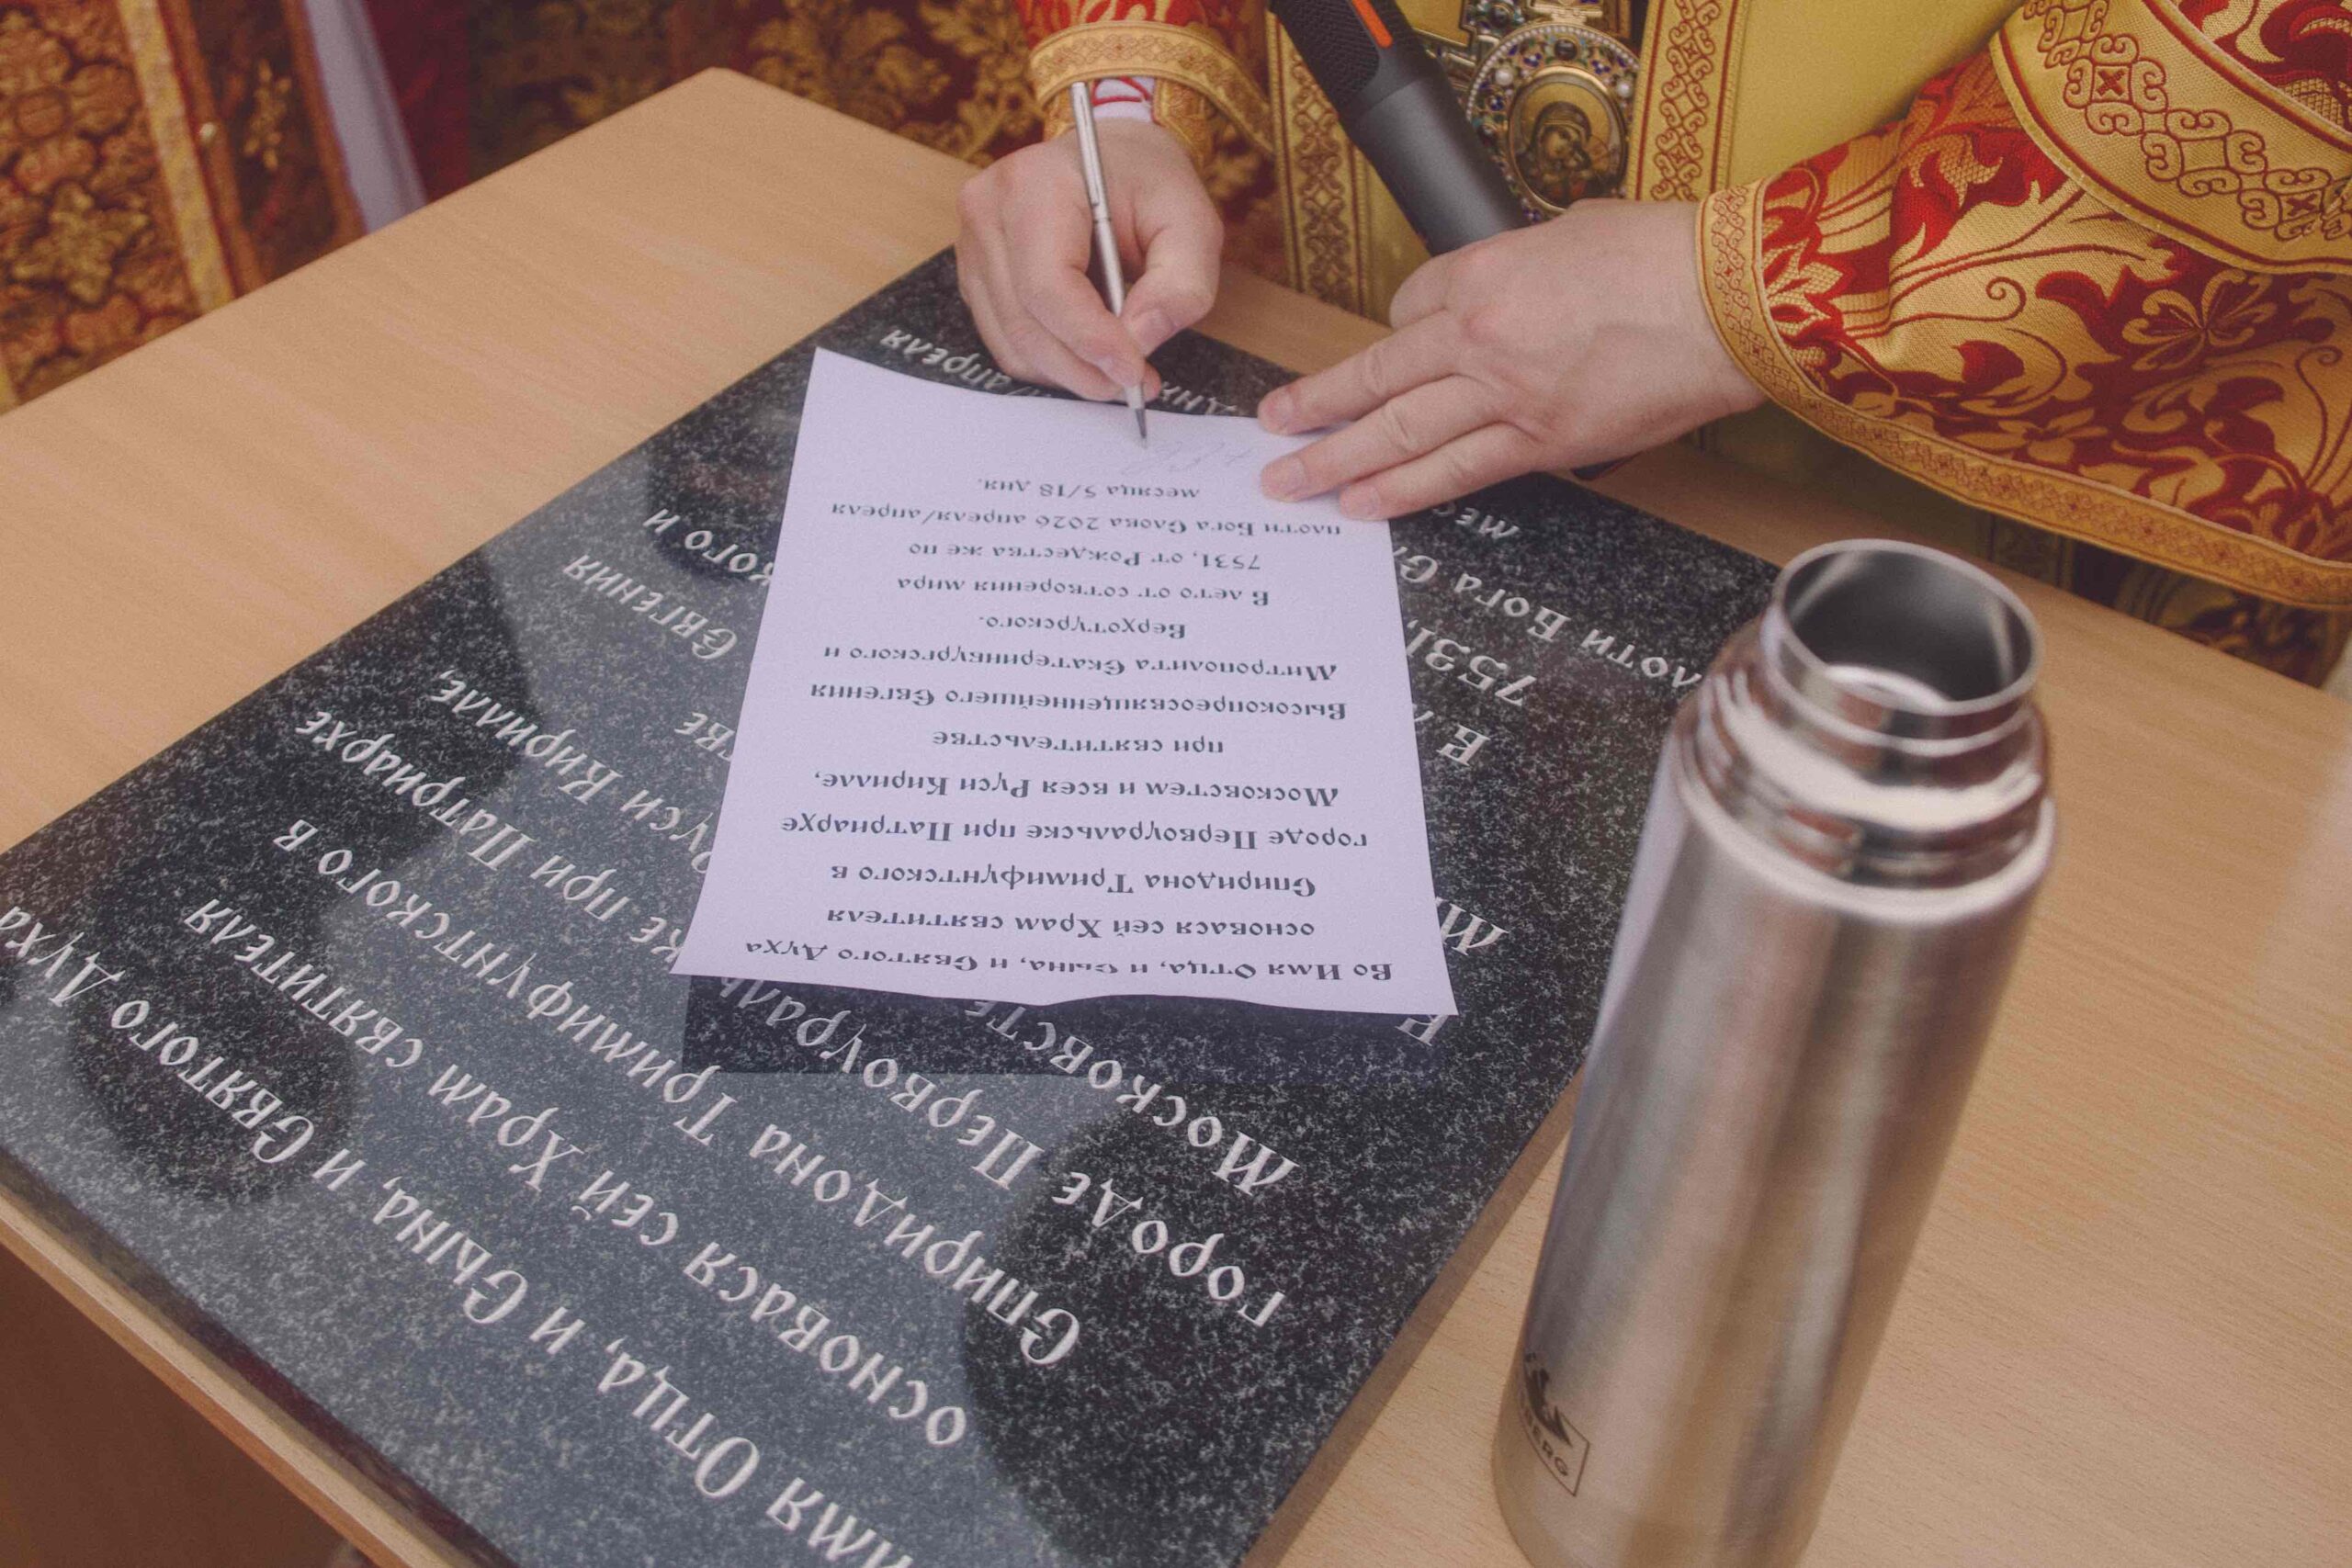 Во Имя Отца, и Сына, и Святого Духа
основася сей Храм святителя
Спиридона Тримифунтского в
городе Первоуральске при Патриархе
Московстем и всея Руси Кирилле,
при святительстве
Высокопреосвященнейшего Евгения
Митрополита Екатеринбургского и
Верхотурского.
В лето от сотворения мира
7531, от Рождества же по
плоти Бога Слова 2026 апреля/апреля
месяца 5/18 дня.
Имя Отца, и Сына, и Святого Духа
основася сей Храм святителя
Спиридона Тримифунтского в
городе при Патриархе
Руси Кирилле,
Евгения
и
В
7531,
плоти Бога апреля
дня